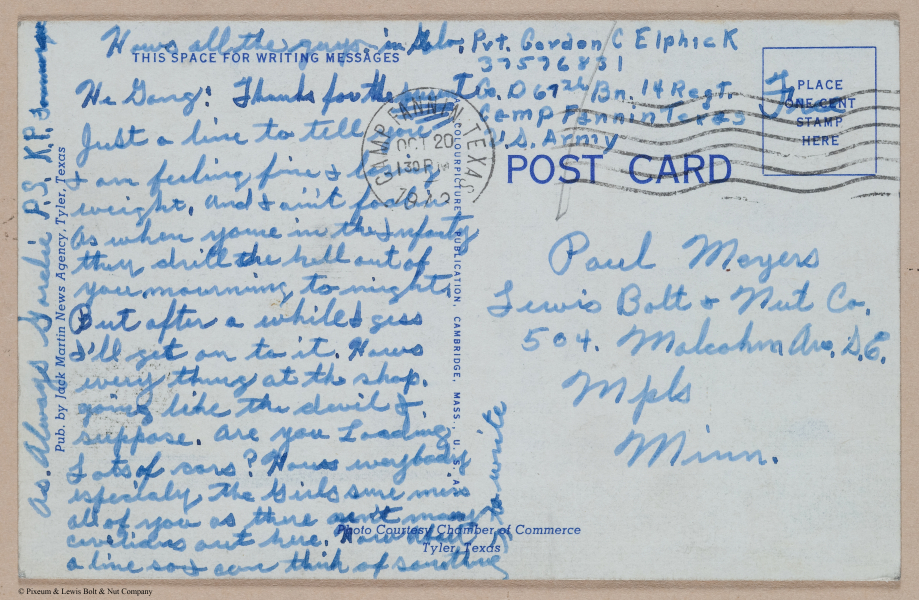 Hows all the guys in
THIS SPACE FOR WRITING MESSAGES
He Gang! Thanks for the
Just a line to tell you
I am feeling fine &
weight. And I ain't
As when youre in the Infanty
they drill the hell out of
you mourning to night.
But after a while I gess
I'll get on to it. Hows
every thing at the shop.
going like the devil I
suppose. Are you Loading
Lots of cars? Hows everybody
especialy the Girls sure miss
all of you as there ain't many
civilians out here. How about
a line so I can think of something
to write
As. Always Gordie P.S. K.P.
Pub. by Jack Martin News Agency, Tyler, Texas
COLOURPICTURE PUBLICATION, CAMBRIDGE, MASS., U.S.A.
Pvt. Gordon C Elphick
37576831
Co. D 67th Bn. 14 Regt.
Camp Fannin Texas
U.S. Army
CAMP FANNIN, TEXAS
OCT 20
130 PM
Free
PLACE
ONE CENT
STAMP
HERE
POST CARD
Paul Meyers
Lewis Bolt & Nut Co.
504. Malcohm Av. S.E.
Mpls
Minn.
Photo Courtesy Chamber of Commerce
Tyler, Texas
© Pixeum & Lewis Bolt & Nut Company